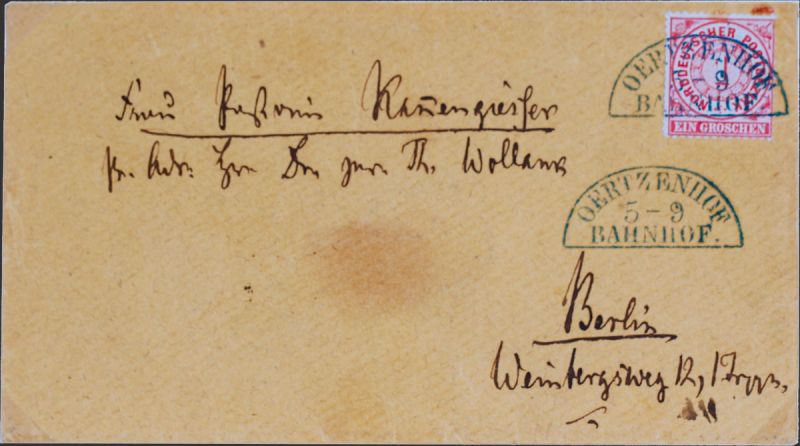 NORDDEUTSCHER POST
1
EIN GROSCHEN
OERTZENHOF
9
BAHNHOF.
Frau Pastorin Kannengießer
pr. Adr: Hrn Dr. jur. Th. Wollank
OERTZENHOF
5-9
BAHNHOF.
Berlin
Weinbergsweg 12, 1 Trpp.